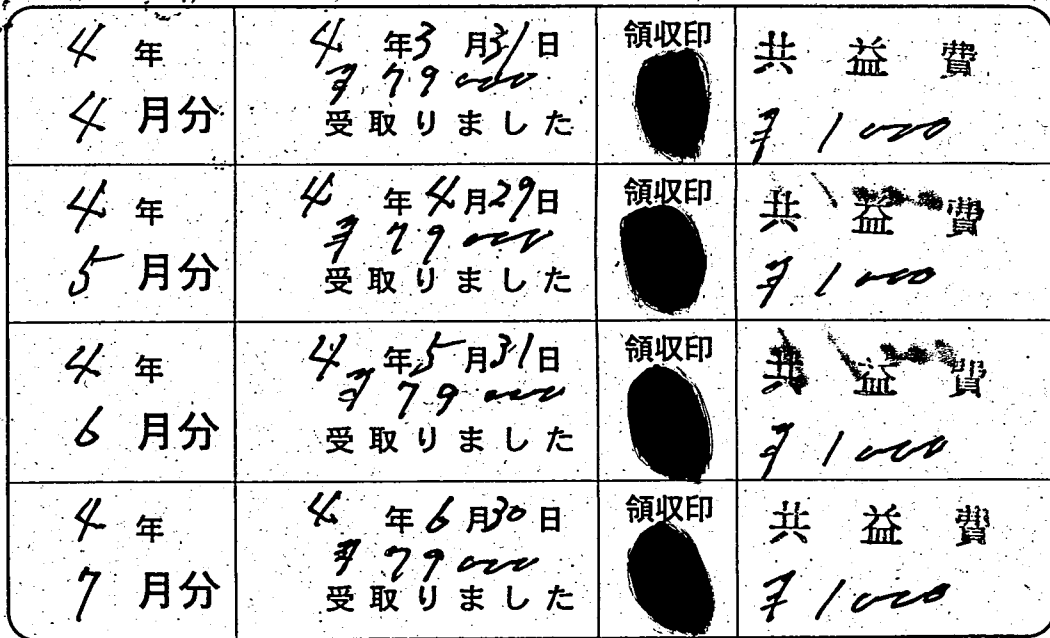 4 年
4 月分
4 年 3 月 31 日
¥ 79000
受取りました
領収印
共 益 費
¥ 1000
4 年
5 月分
4 年 4 月 29 日
¥ 79000
受取りました
領収印
共 益 費
¥ 1000
4 年
6 月分
4 年 5 月 31 日
¥ 79000
受取りました
領収印
共 益 費
¥ 1000
4 年
7 月分
4 年 6 月 30 日
¥ 79000
受取りました
領収印
共 益 費
¥ 1000